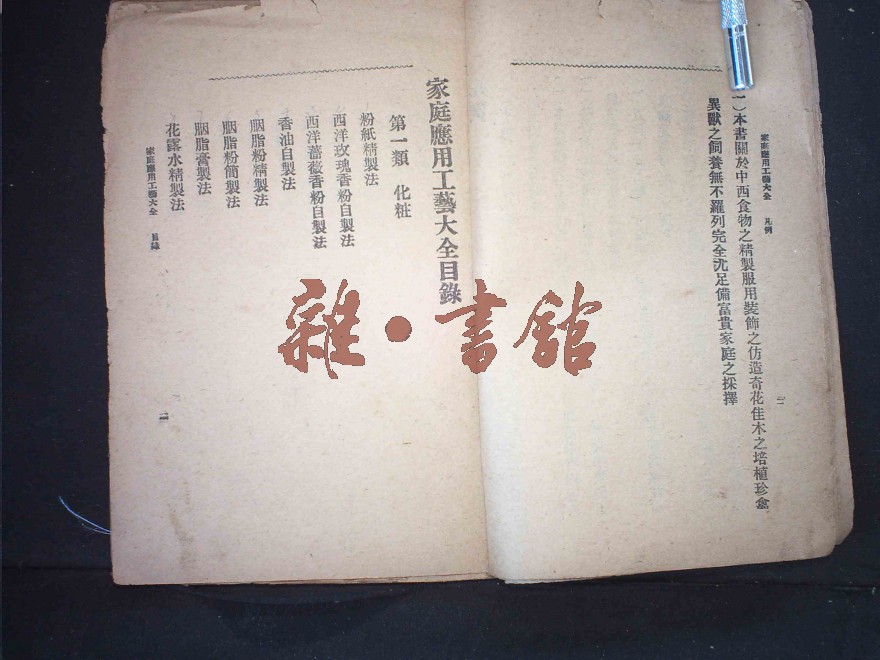 家庭應用工藝大全 凡例
一）本書關於中西食物之精製服用裝飾之仿造奇花佳木之培植珍禽
異獸之飼養無不羅列完全尤足備富貴家庭之採擇
二
家庭應用工藝大全目錄
第一類 化粧
粉紙精製法
西洋玫瑰香粉自製法
西洋薔薇香粉自製法
香油自製法
胭脂粉精製法
胭脂粉簡製法
胭脂膏製法
花露水精製法
家庭應用工藝大全 目錄
一
雜·書館